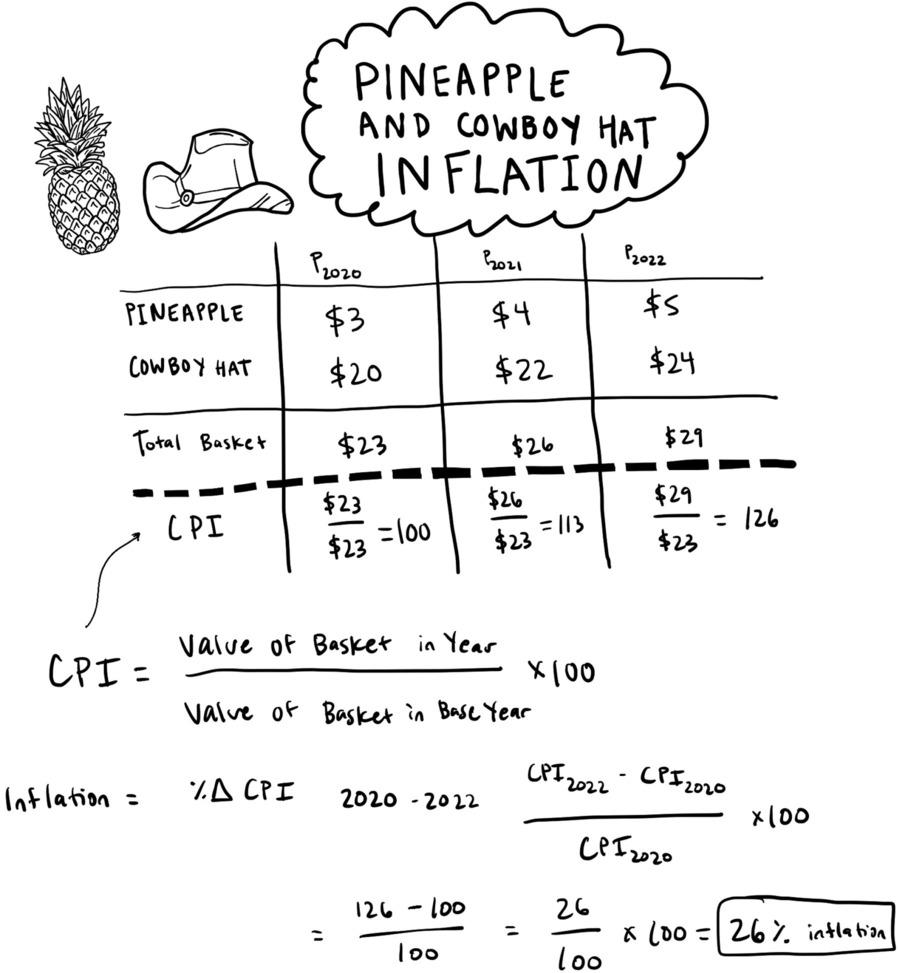 PINEAPPLE
AND COWBOY HAT
INFLATION
P2020 P2021 P2022
PINEAPPLE $3 $4 $5
COWBOY HAT $20 $22 $24
Total Basket $23 $26 $29
CPI $23/$23 =100 $26/$23 =113 $29/$23 = 126
CPI = Value of Basket in Year / Value of Basket in Base Year ×100
Inflation = %Δ CPI 2020-2022 CPI2022 - CPI2020 / CPI2020 ×100
= 126 - 100 / 100 = 26 / 100 × 100 = 26% inflation